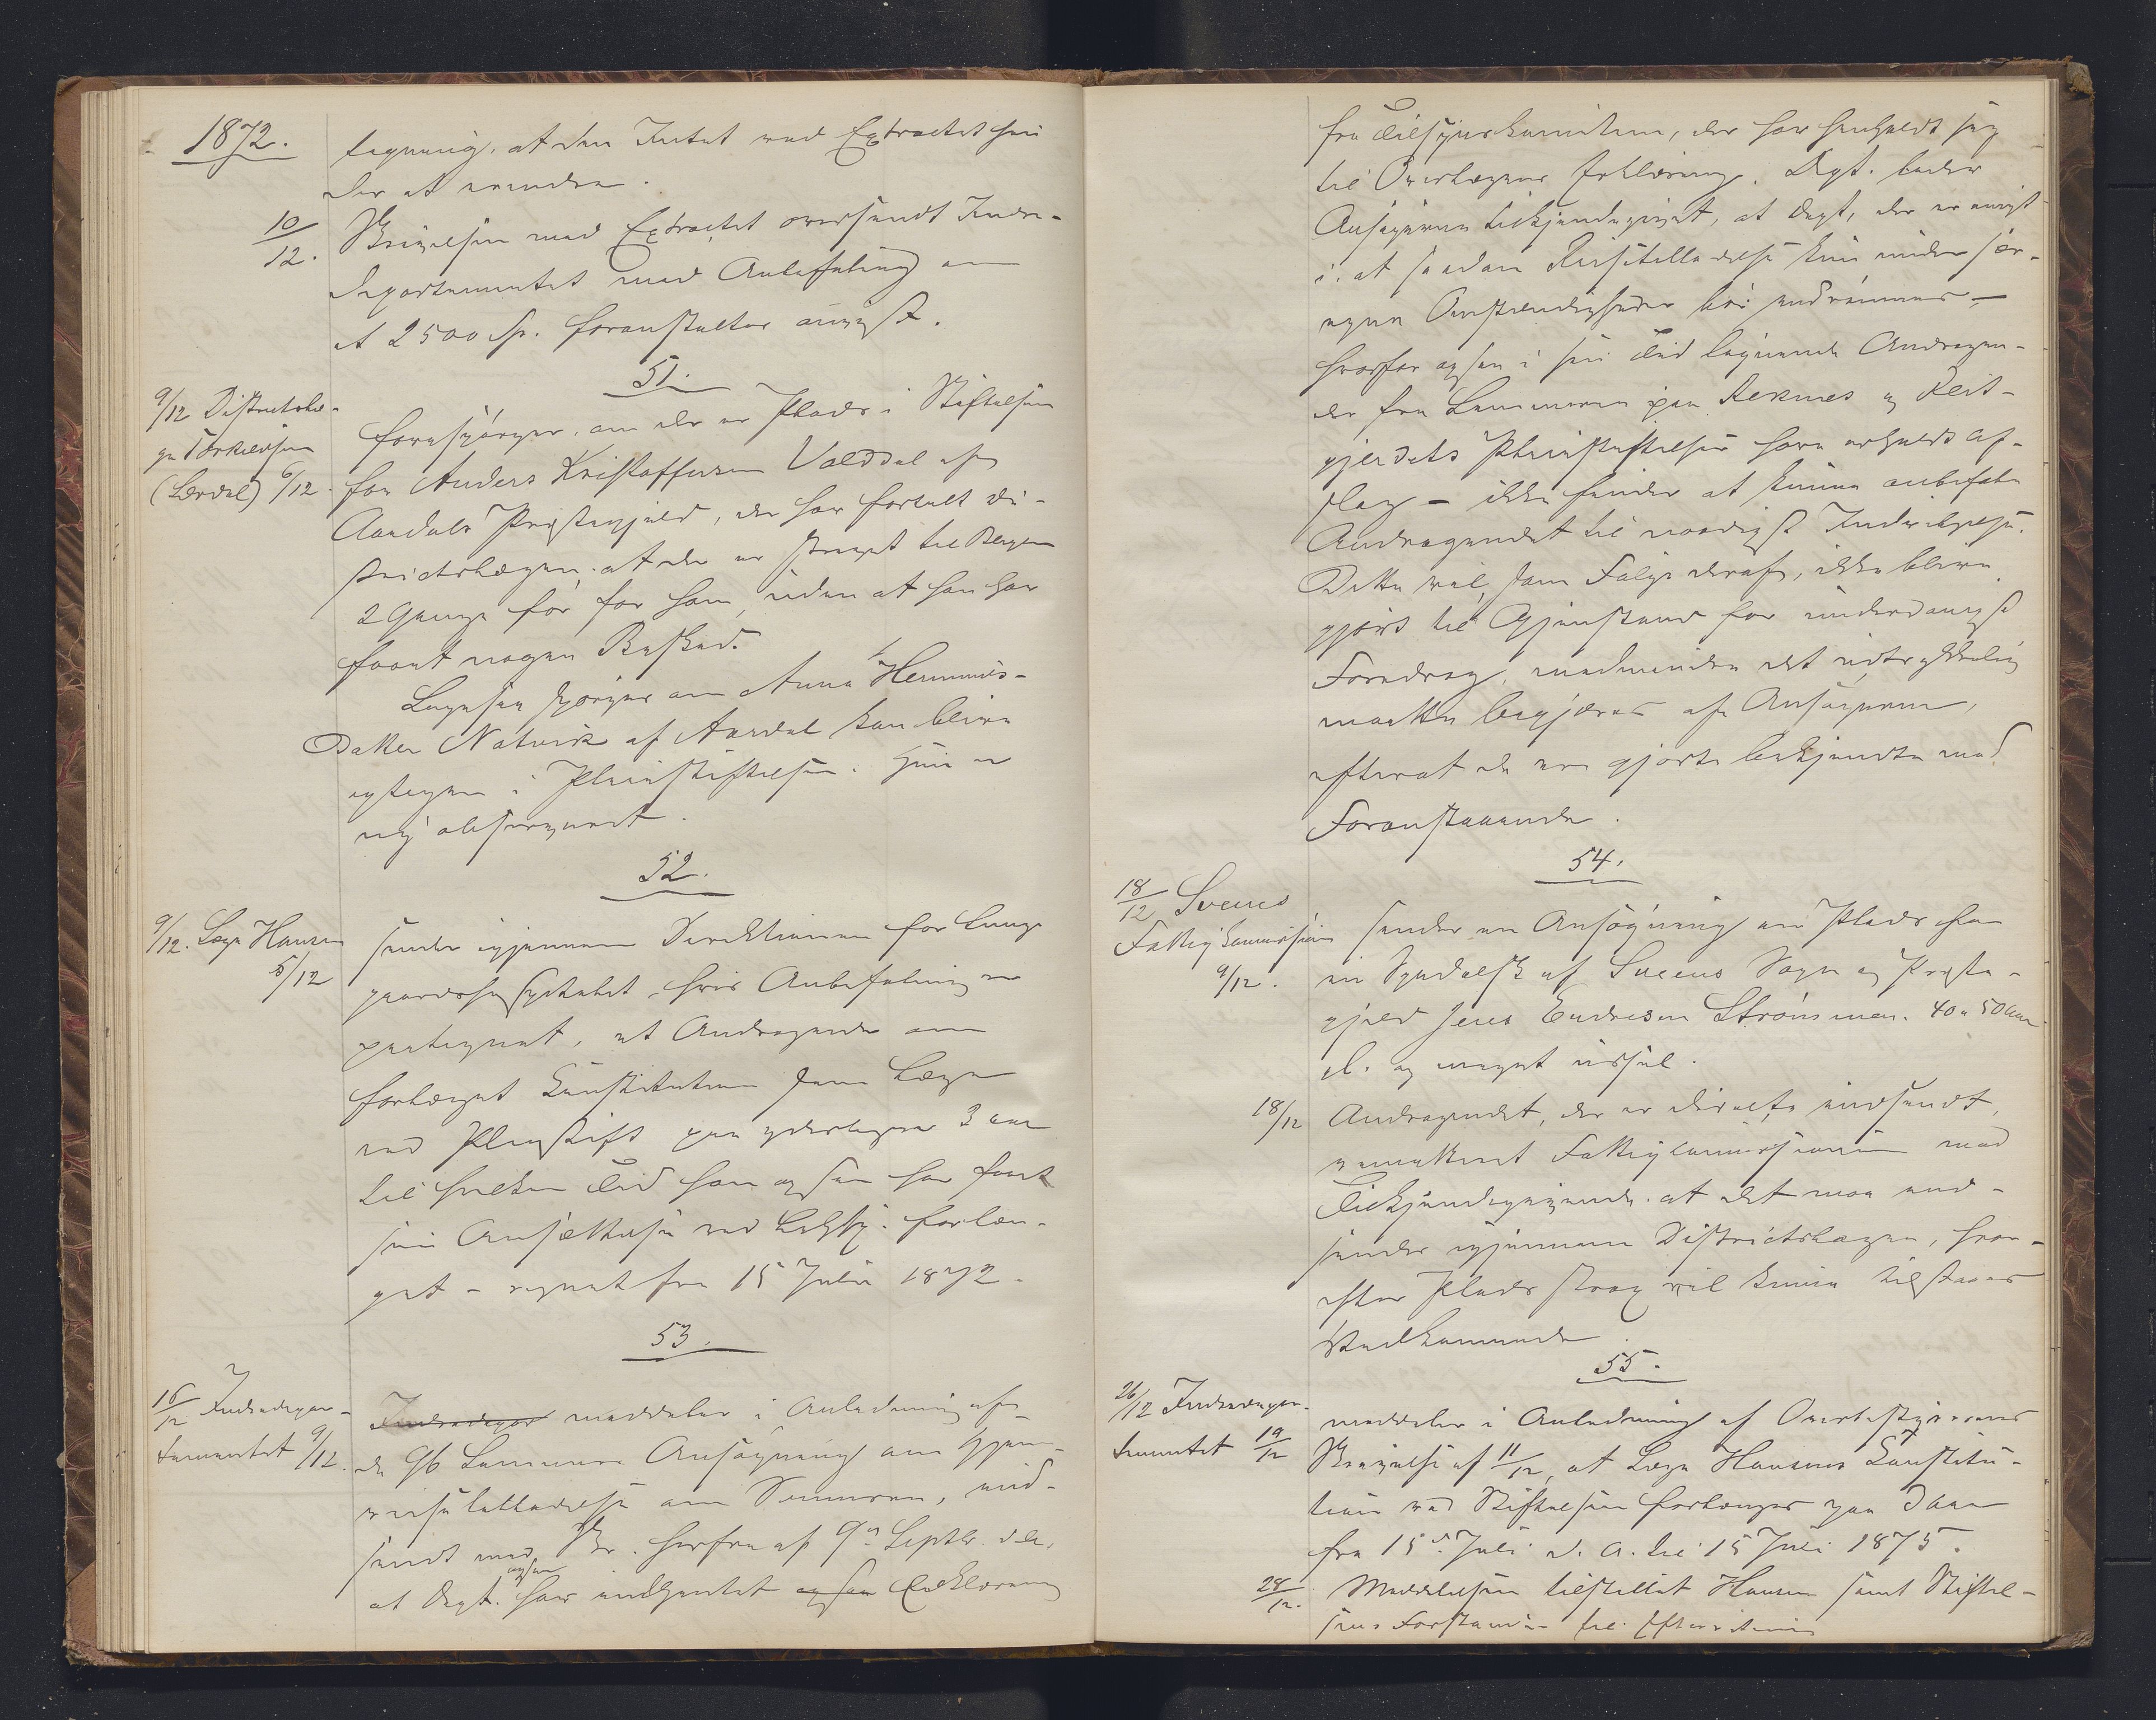 1872.
tegning, at den Intet ved Extractet fin
der at erindre.
10/12. Skrivelsen med Extractet oversendt Indre-
departementet med Anbefaling om
at 2500 Sp. foranstaltes anvist.
51.
9/12 Districtslæ-
ge Torkildsen
(Lærdal) 6/12.
forespørger, om der er Plads i Stiftelsen
for Anders Kristoffersen Volddal af
Aardals Præstegjeld, der har fortalt Di-
strictslægen, at der er skrevet til Bergen
2 Gange før for ham, uden at han har
faaet nogen Besked.
Ligesaa spørges om Anna Hermunds-
datter Natvik af Aardal kan blive
optagen i Pleiestiftelsen. Hun er
ny observeret.
52.
9/12. Læge Hansen
5/12
sender igjennem Direktionen for Lunge
gaardshospitalet, hvis Anbefaling er
paategnet, et Andragende om
forlænget Constitution som Læge
ved Pleiestift paa yderligere 3 aar
til hvilken Tid han ogsaa har faaet
sin Ansættelse ved Lghsp. forlæn-
get - regnet fra 15 Juli 1872.
53.
16/12 Indredepar-
tementet 9/12.
Indredepar meddeler i Anledning af
de 96 Lemmers Ansøgning om Gjen-
visitilladelse om Sommeren, ind-
sendt med Skr. herfra af 9de Septbr. d.A.
at Dept. ogsaa har indhentet ogsaa Erklæring
fra Tilsynskomiteen, der har henholdt sig
til Overlægens Erklæring. Dept. beder
Ansøgerne tilkjendegivet, at Dept., der er enigt
i, at saadan Reisetilladelse kun under sær-
egne Omstændigheder bør indrømmes -
hvorfor ogsaa i sin Tid lignende Andragen-
der fra Lemmerne paa Reknes og Reit-
gjerdets Pleiestiftelser have erholdt Af-
slag - ikke finder at kunne anbefale
Andragendet til naadigst Indvilgelse.
Dette vil, som Følge deraf, ikke blive
gjort til Gjenstand for underdanigst
Foredrag, medmindre det udtrykkelig
maatte begjæres af Ansøgerne,
efterat de ere gjorte bekjendte med
Foranstaaende.
54.
18/12 Sveens
Fattigkommission
9/12.
sender en Ansøgning om Plads for
en Spedalsk af Sveens Sogn og Præste-
gjeld Jens Endresen Strømmen. 40 a 50 aar
gl. og meget ussel.
18/12 Andragendet, der er directe indsendt,
remitteret Fattigcommissionen med
Tilkjendegivende, at det maa ind-
sendes igjennem Districtslægen, hvor-
efter Plads strax vil kunne tilstaaes
Vedkommende.
55.
26/12 Indredepar-
tementet 19/12
meddeler i Anledning af Overbestyrerens
Skrivelse af 11/12, at Læge Hansens Constitu-
tion ved Stiftelsen forlænges paa 3 aar
fra 15de Juli d. A. til 15 Juli 1875.
28/12. Meddelelsen tilstillet Hansen samt Stiftel-
sens Forstander til Efterretning